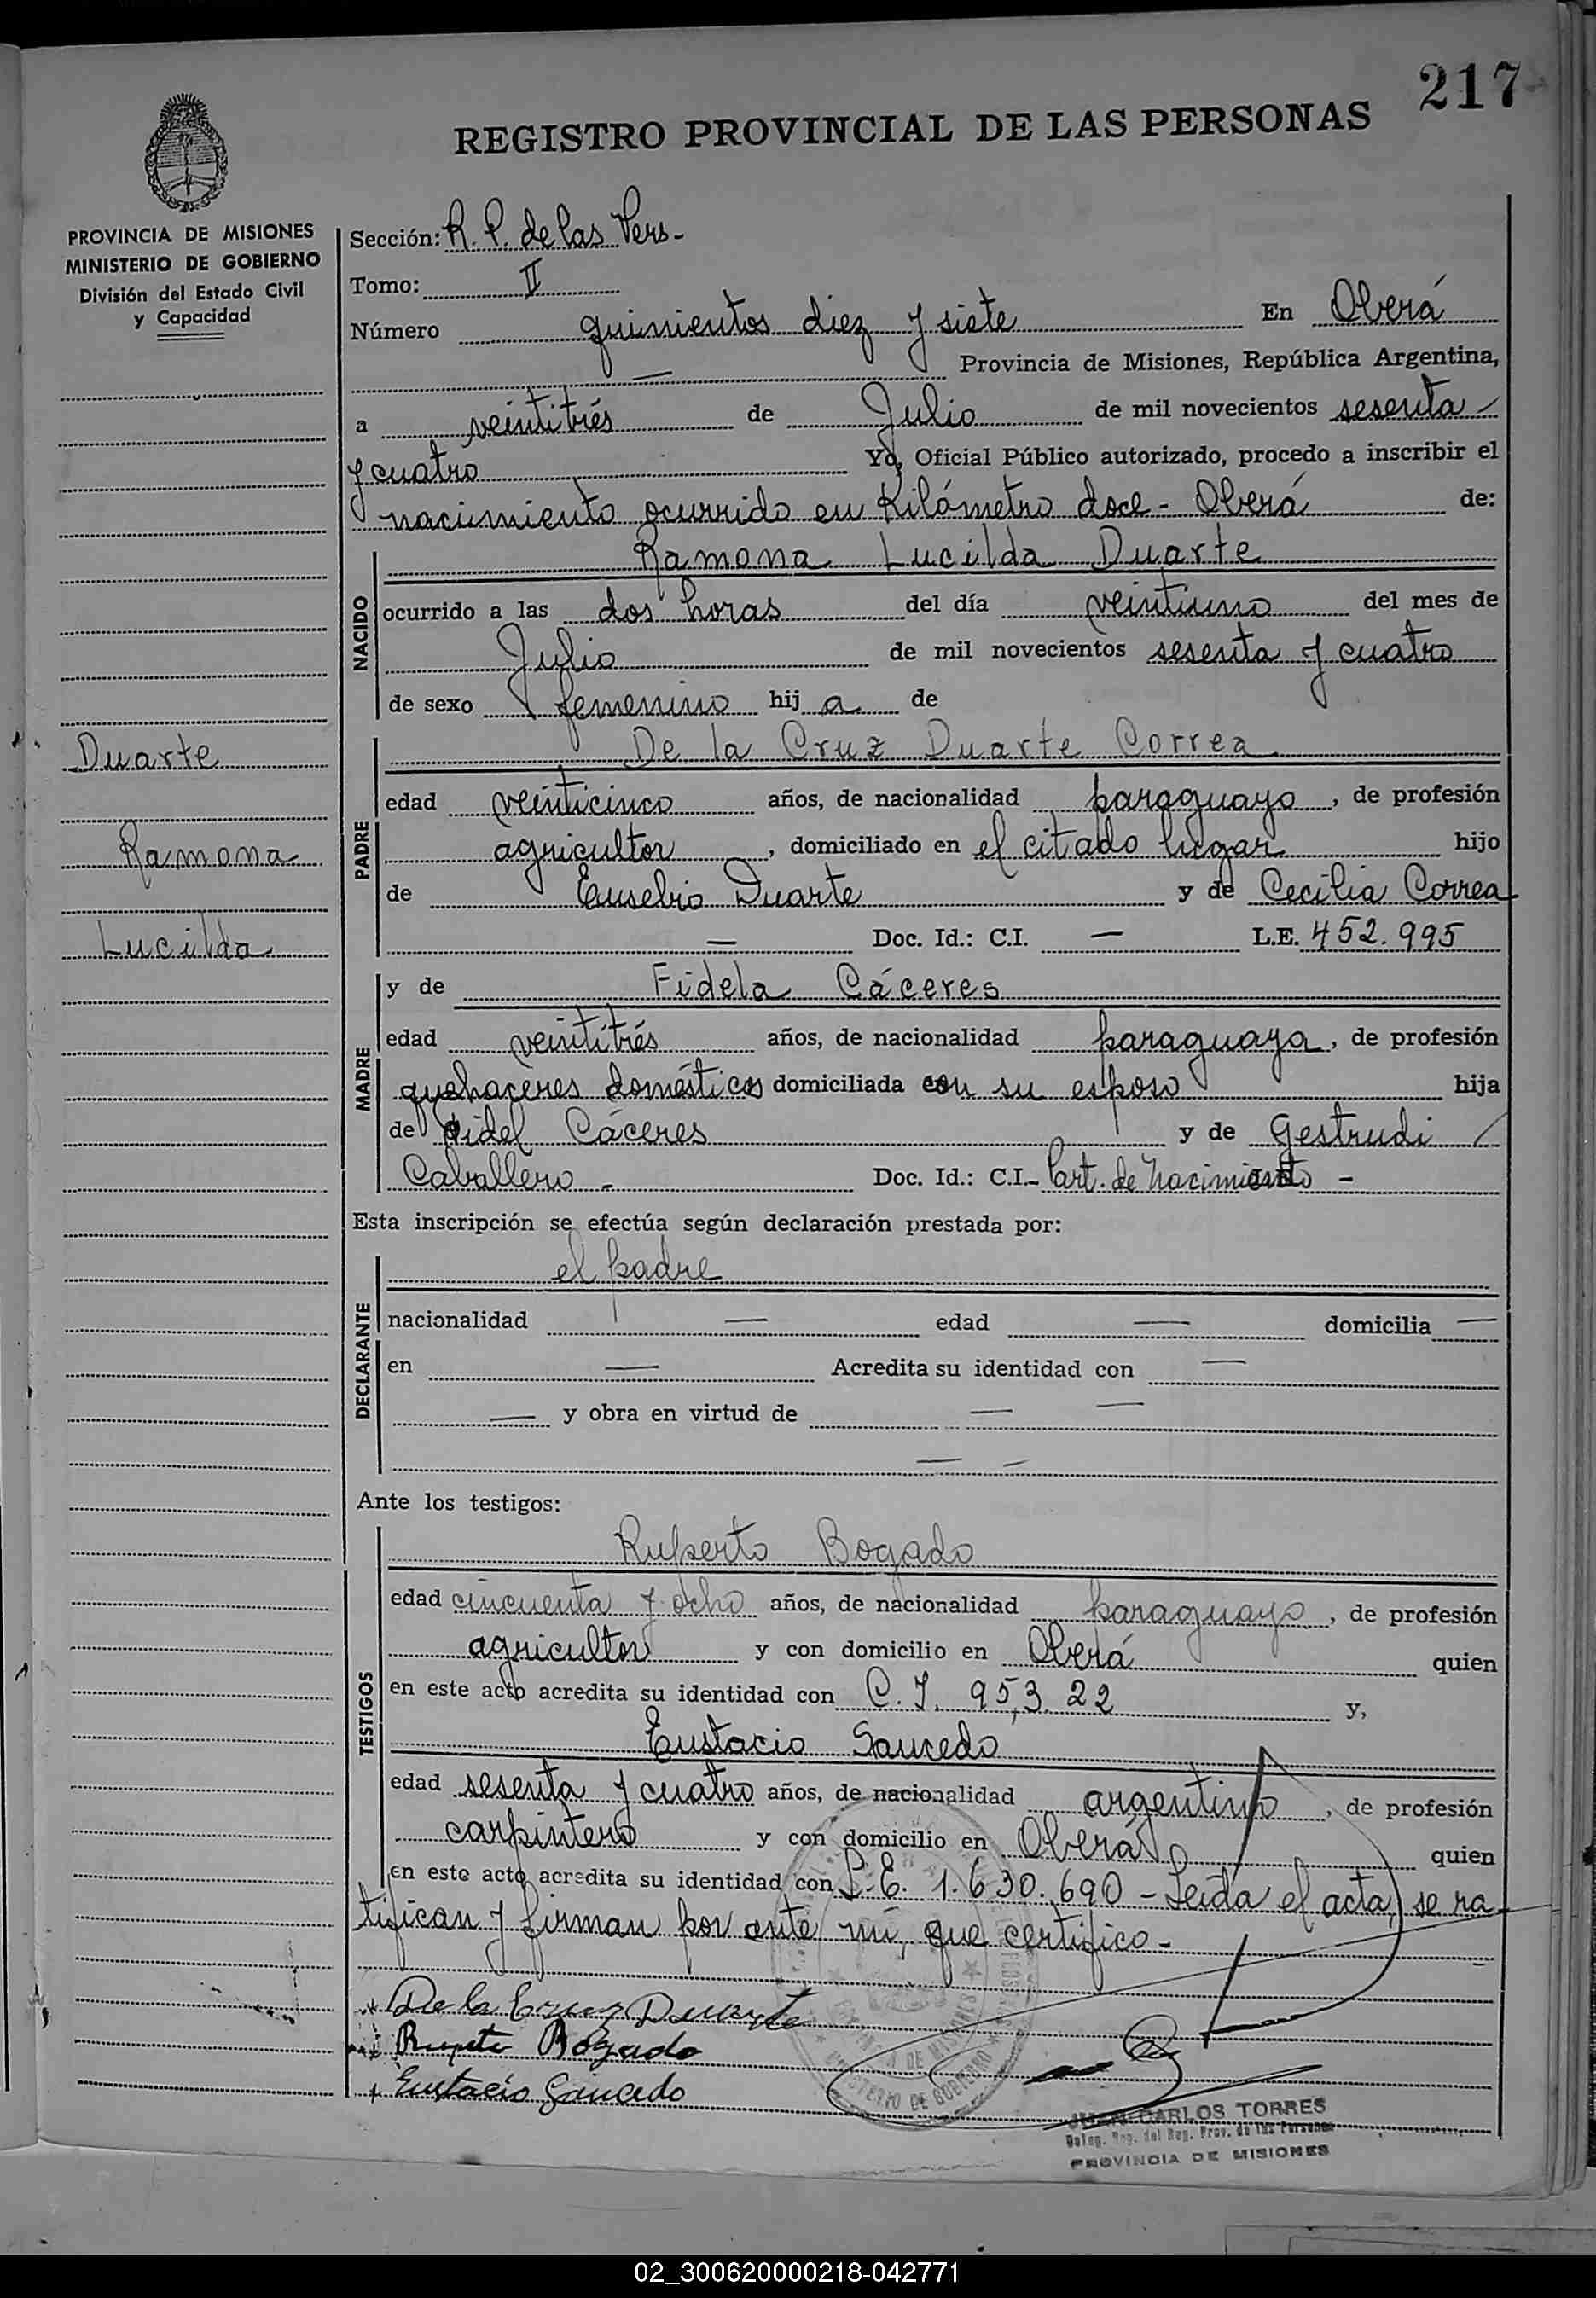 217
REGISTRO PROVINCIAL DE LAS PERSONAS
PROVINCIA DE MISIONES
MINISTERIO DE GOBIERNO
División del Estado Civil
y Capacidad
Sección: R. P. de las Pers-
Tomo: II
Número quinientos diez y siete En Oberá
— Provincia de Misiones, República Argentina,
a veintitrés de Julio de mil novecientos sesenta
y cuatro Yo, Oficial Público autorizado, procedo a inscribir el
nacimiento ocurrido en Kilómetro doce - Oberá de:
NACIDO
Ramona Lucilda Duarte
ocurrido a las dos horas del día veintiuno del mes de
Julio de mil novecientos sesenta y cuatro
de sexo femenino hij a de
Duarte
Ramona
Lucilda
PADRE
De la Cruz Duarte Correa
edad veinticinco años, de nacionalidad paraguayo, de profesión
agricultor, domiciliado en el citado lugar hijo
de Eusebio Duarte y de Cecilia Correa
— Doc. Id.: C.I. — L.E. 452.995
MADRE
y de Fidela Cáceres
edad veintitrés años, de nacionalidad paraguaya, de profesión
quehaceres domésticos domiciliada con su esposo hija
de Fidel Cáceres y de Gestrudi
Caballero - Doc. Id.: C.I.- Part. de Nacimiento -
Esta inscripción se efectúa según declaración prestada por:
DECLARANTE
el padre
nacionalidad — edad — domicilia —
en — Acredita su identidad con —
— y obra en virtud de — —
— –
Ante los testigos:
TESTIGOS
Ruperto Bogado
edad cincuenta y ocho años, de nacionalidad paraguayo, de profesión
agricultor y con domicilio en Oberá quien
en este acto acredita su identidad con C. I. 95,3.22 y,
Eustacio Saucedo
edad sesenta y cuatro años, de nacionalidad argentino, de profesión
carpintero y con domicilio en Oberá quien
en este acto acredita su identidad con L.E. 1.630.690 - Leída el acta, se ra-
tifican y firman por ante mí, que certifico-
De la Cruz Duarte
Rupeto Bogado
Eustacio Saucedo
PROVINCIA DE MISIONES
MINISTERIO DE GOBIERNO
JUAN CARLOS TORRES
Deleg. Reg. del Reg. Prov. de las Personas
PROVINCIA DE MISIONES
02_300620000218-042771